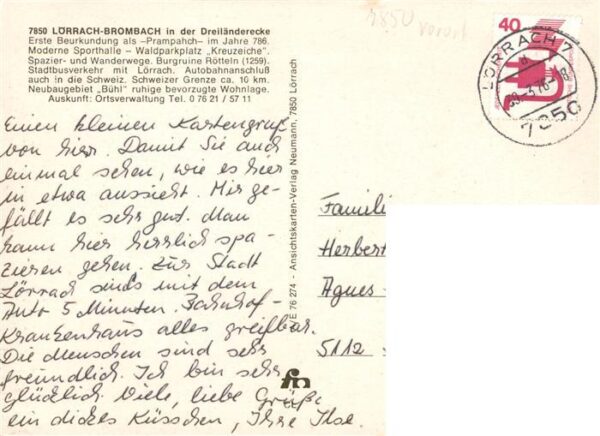 7850 LÖRRACH-BROMBACH in der Dreiländerecke
Erste Beurkundung als –Prampahch– im Jahre 786.
Moderne Sporthalle – Waldparkplatz „Kreuzeiche".
Spazier- und Wanderwege. Burgruine Rötteln (1259).
Stadtbusverkehr mit Lörrach. Autobahnanschluß
auch in die Schweiz. Schweizer Grenze ca. 10 km.
Neubaugebiet „Bühl" ruhige bevorzugte Wohnlage.
Auskunft: Ortsverwaltung Tel. 0 76 21 / 57 11
Einen kleinen Kartengruß
von hier. Damit Sie auch
einmal sehen, wie es hier
in etwa aussieht. Mir ge-
fällt es sehr gut. Man
kann hier herrlich spa-
zieren gehen. Zur Stadt
Lörrach sinds mit dem
Auto 5 Minuten. Bahnhof-
Krankenhaus alles greifbar.
Die Menschen sind sehr
freundlich. Ich bin sehr
glücklich. Viele, liebe Grüße
ein dickes Küsschen, Ihre Ilse.
E 76 274 - Ansichtskarten-Verlag Neumann, 7850 Lörrach
7850
40
LÖRRACH 7
7850
Famili
Herbert
Agnes-
5112